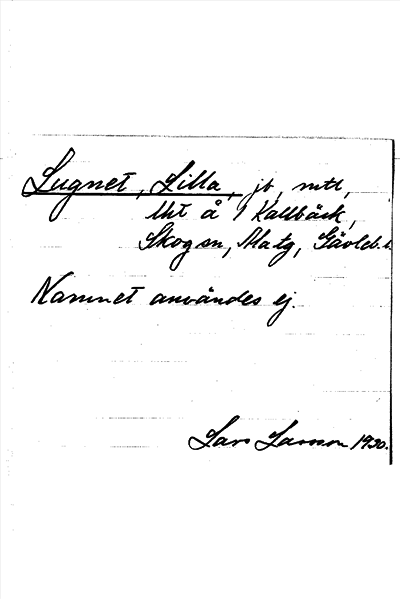 Lugnet, Lilla, jb, mtl,
Uht å 1 Kallbäck,
Skog sn, Ala tg, Gävleb. l.
Namnet användes ej.
Lars Larsson 1930.